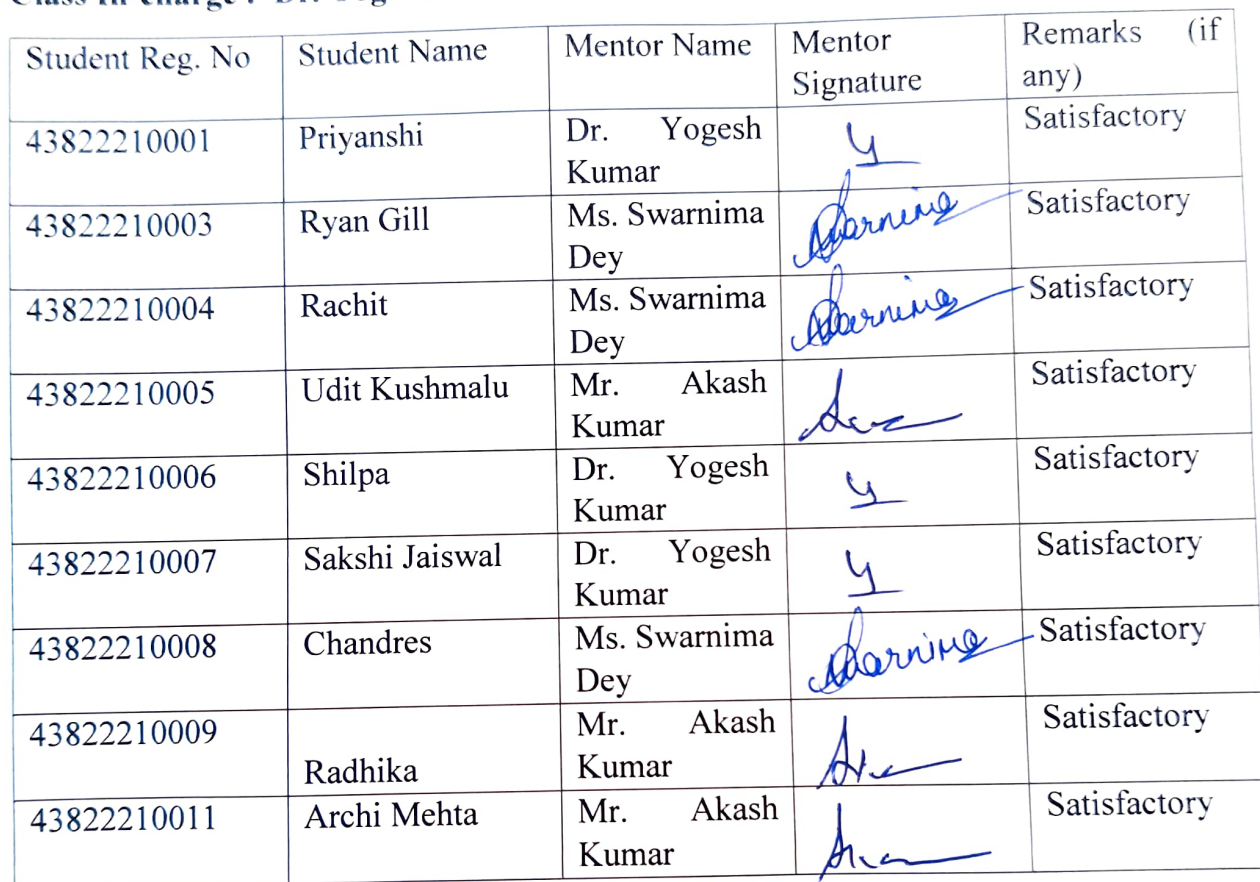 Student Reg. No Student Name Mentor Name Mentor Signature Remarks (if any)
43822210001 Priyanshi Dr. Yogesh Kumar y Satisfactory
43822210003 Ryan Gill Ms. Swarnima Dey Swarnima Satisfactory
43822210004 Rachit Ms. Swarnima Dey Swarnima Satisfactory
43822210005 Udit Kushmalu Mr. Akash Kumar Satisfactory
43822210006 Shilpa Dr. Yogesh Kumar y Satisfactory
43822210007 Sakshi Jaiswal Dr. Yogesh Kumar y Satisfactory
43822210008 Chandres Ms. Swarnima Dey Swarnima Satisfactory
43822210009 Radhika Mr. Akash Kumar Satisfactory
43822210011 Archi Mehta Mr. Akash Kumar Satisfactory